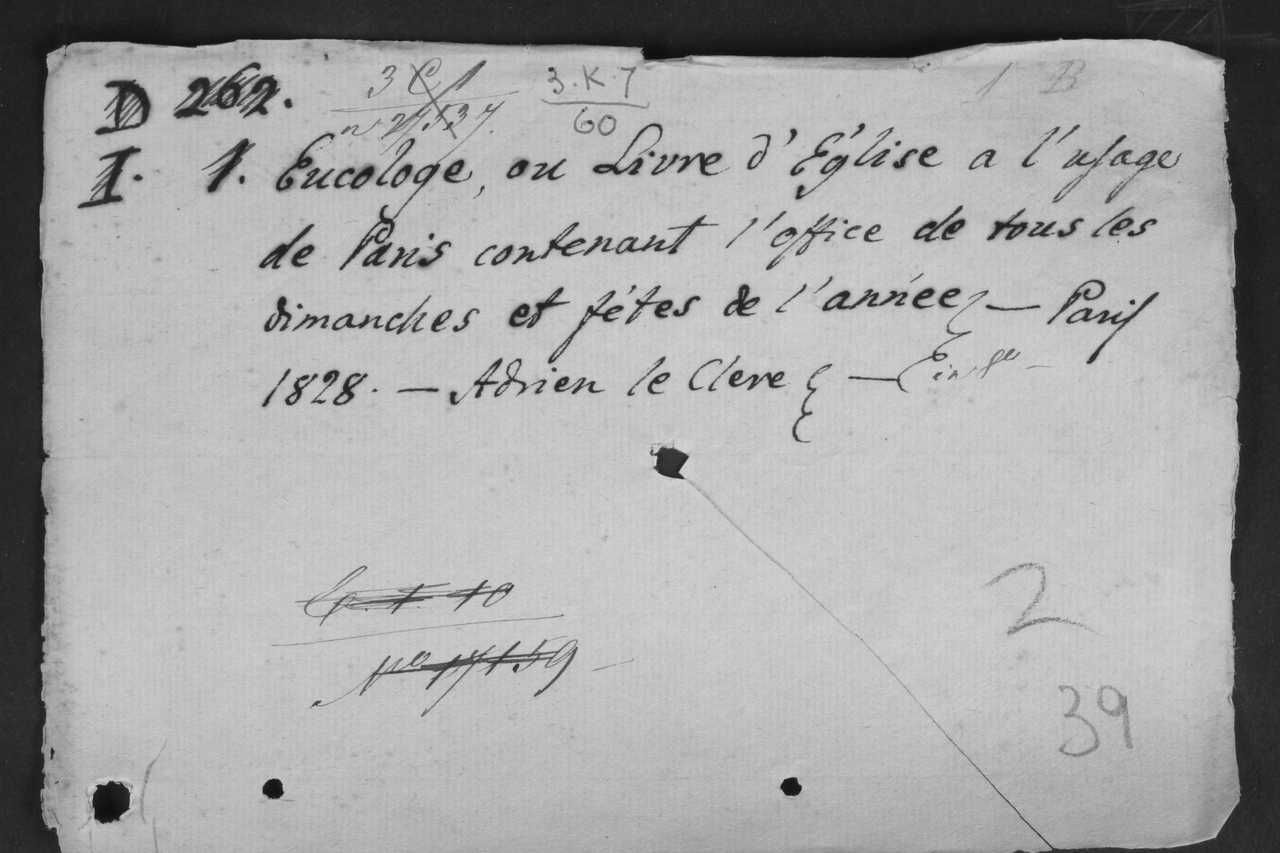 D 262. 3 C 1 3.K.7 1 B
60
I. 1. Eucologe, ou Livre d'Église a l'usage
de Paris contenant l'office de tous les
dimanches et fétes de l'année — Paris
1828. — Adrien le Clere —
N° 17159
2
39